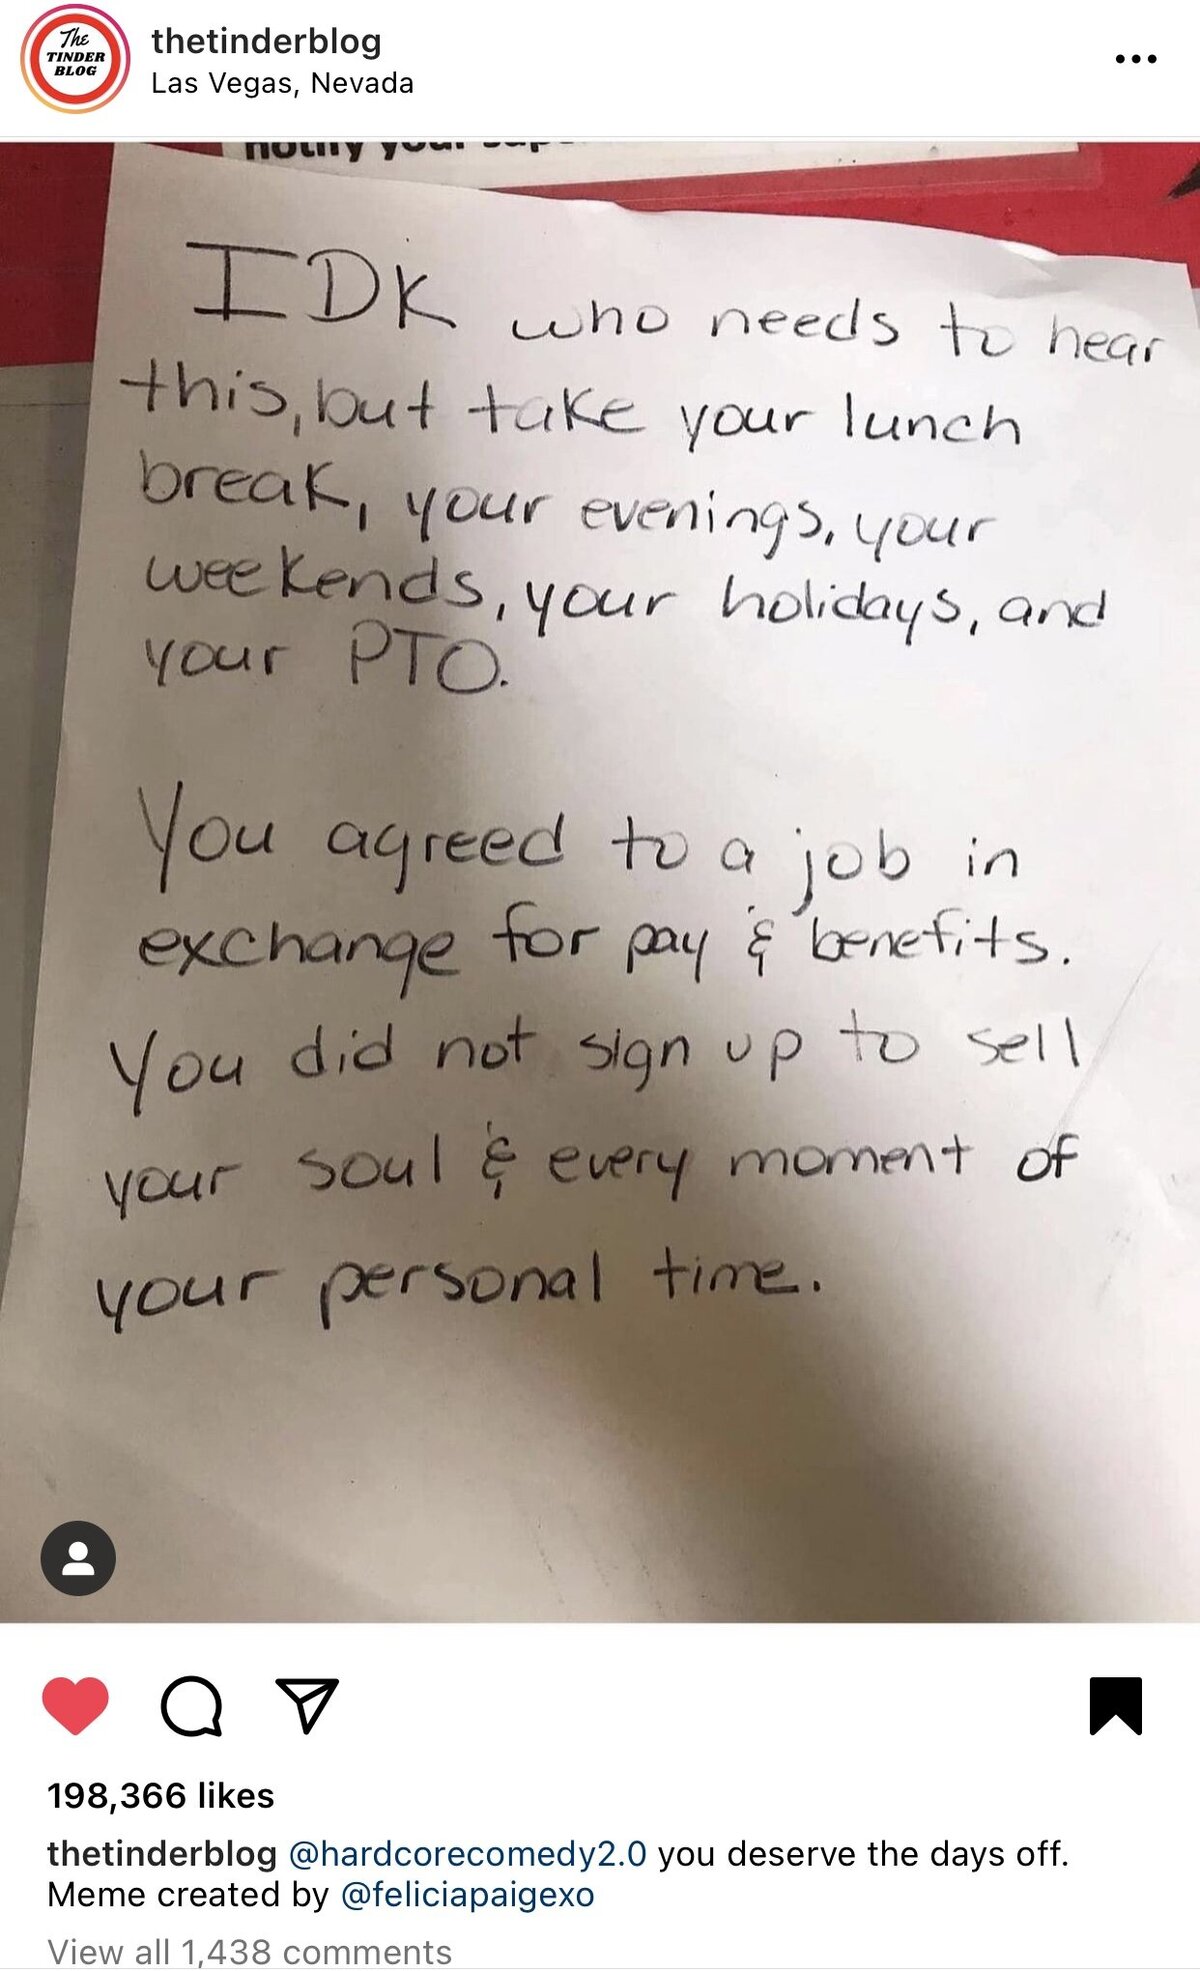 The
TINDER
BLOG
thetinderblog
Las Vegas, Nevada
notify your
IDK who needs to hear
this, but take your lunch
break, your evenings, your
weekends, your holidays, and
your PTO.
You agreed to a job in
exchange for pay & benefits.
You did not sign up to sell
your soul & every moment of
your personal time.
198,366 likes
thetinderblog @hardcorecomedy2.0 you deserve the days off.
Meme created by @feliciapaigexo
View all 1,438 comments